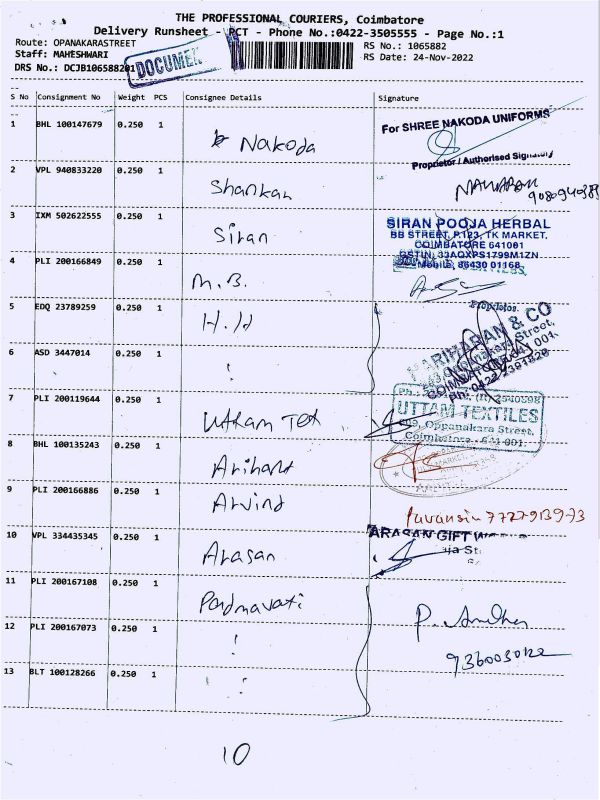 THE PROFESSIONAL COURIERS, Coimbatore
Delivery Runsheet - PCT - Phone No.:0422-3505555 - Page No.:1
Route: OPANAKARASTREET
Staff: MAHESHWARI
DRS No.: DCJB106588201
DOCUMEN
RS No.: 1065882
RS Date: 24-Nov-2022
S No Consignment No Weight PCS Consignee Details Signature
1 BHL 100147679 0.250 1 Nakoda
For SHREE NAKODA UNIFORMS
Proprietor / Authorised Signatory
2 VPL 940833220 0.250 1 Shankar
3 IXM 502622555 0.250 1 Siran
SIRAN POOJA HERBAL
BB STREET, P.123, TK MARKET,
COIMBATORE 641001
GSTIN: 33AQXPS1799M1ZN
Mobile: 86430 01168
4 PLI 200166849 0.250 1 M.B.
Proprietor
5 EDQ 23789259 0.250 1
HARIHARAN & CO
Street,
COIMBATORE 001.
6 ASD 3447014 0.250 1
7 PLI 200119644 0.250 1 Uttam Tex
UTTAM TEXTILES
Oppanakara Street,
Coimbatore - 641 001.
8 BHL 100135243 0.250 1 Arihant
9 PLI 200166886 0.250 1 Arvind
7727913973
10 VPL 334435345 0.250 1 Arasan
ARASAN GIFT
11 PLI 200167108 0.250 1 Padmavati
12 PLI 200167073 0.250 1
13 BLT 100128266 0.250 1
10